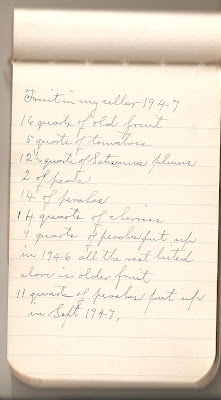 Fruit in my cellar 1947
16 quarts of old fruit
5 quarts of tomatoes
12 quarts of Satsuma plums
2 of pears
14 of peaches
14 quarts of cherries
9 quarts of peaches put up
in 1946 all the rest listed
above is older fruit
11 quarts of peaches put up
in Sept 1947.